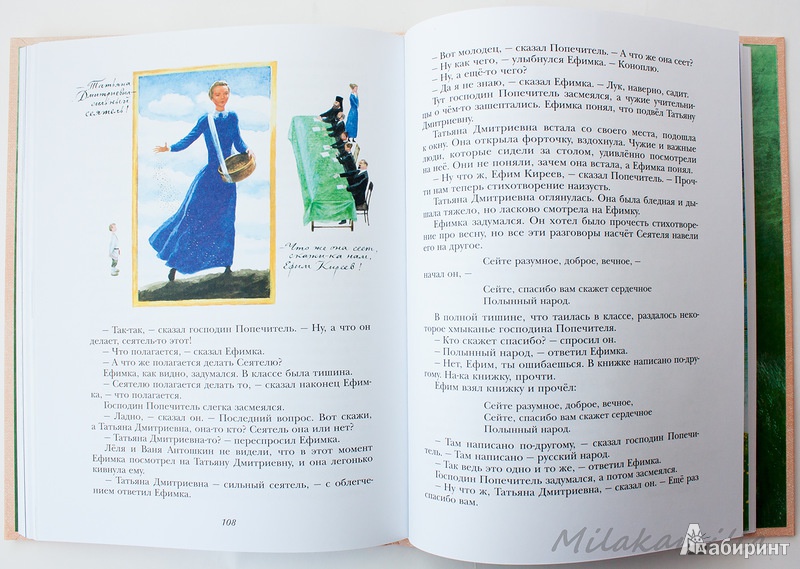 – Татьяна
Дмитриевна –
сильный
сеятель!
– Что же она сеет,
скажи-ка нам,
Ефим Киреев!
– Так-так, — сказал господин Попечитель. — Ну, а что он
делает, сеятель-то этот!
– Что полагается, — сказал Ефимка.
– А что же полагается делать Сеятелю?
Ефимка, как видно, задумался. В классе была тишина.
– Сеятелю полагается делать то, — сказал наконец Ефим-
ка, — что полагается.
Господин Попечитель слегка засмеялся.
– Ладно, — сказал он. — Последний вопрос. Вот скажи,
а Татьяна Дмитриевна, она-то кто? Сеятель она или нет?
– Татьяна Дмитриевна-то? — переспросил Ефимка.
Лёля и Ваня Антошкин не видели, что в этот момент
Ефимка посмотрел на Татьяну Дмитриевну, и она легонько
кивнула ему.
– Татьяна Дмитриевна — сильный сеятель, — с облегче-
нием ответил Ефимка.
108
– Вот молодец, — сказал Попечитель. — А что же она сеет?
– Ну как чего, — улыбнулся Ефимка. — Коноплю.
– Ну, а ещё-то чего?
– Да я не знаю, — сказал Ефимка. — Лук, наверно, садит.
Тут господин Попечитель засмеялся, а чужие учительни-
цы о чём-то зашептались. Ефимка понял, что подвёл Татьяну
Дмитриевну.
Татьяна Дмитриевна встала со своего места, подошла
к окну. Она открыла форточку, вздохнула. Чужие и важные
люди, которые сидели за столом, удивлённо посмотрели
на неё. Они не поняли, зачем она встала, а Ефимка понял.
– Ну что ж, Ефим Киреев, — сказал Попечитель. — Проч-
ти нам теперь стихотворение наизусть.
Татьяна Дмитриевна оглянулась. Она была бледная и ды-
шала тяжело, но ласково смотрела на Ефимку.
Ефимка задумался. Он хотел было прочесть стихотворе-
ние про весну, но все эти разговоры насчёт Сеятеля навели
его на другое.
Сейте разумное, доброе, вечное, –
начал он, —
Сейте, спасибо вам скажет сердечное
Полынный народ.
В полной тишине, что таилась в классе, раздалось неко-
торое хмыканье господина Попечителя.
– Кто скажет спасибо? — спросил он.
– Полынный народ, — ответил Ефимка.
– Нет, Ефим, ты ошибаешься. В книжке написано по-дру-
гому. На-ка книжку, прочти.
Ефим взял книжку и прочёл:
Сейте разумное, доброе, вечное,
Сейте, спасибо вам скажет сердечное
Полынный народ.
– Там написано по-другому, — сказал господин Попечи-
тель. — Там написано — русский народ.
– Так ведь это одно и то же, — ответил Ефимка.
Господин Попечитель задумался, а потом засмеялся.
– Ну что ж, Татьяна Дмитриевна, — сказал он. — Ещё раз
спасибо вам.
Лабиринт